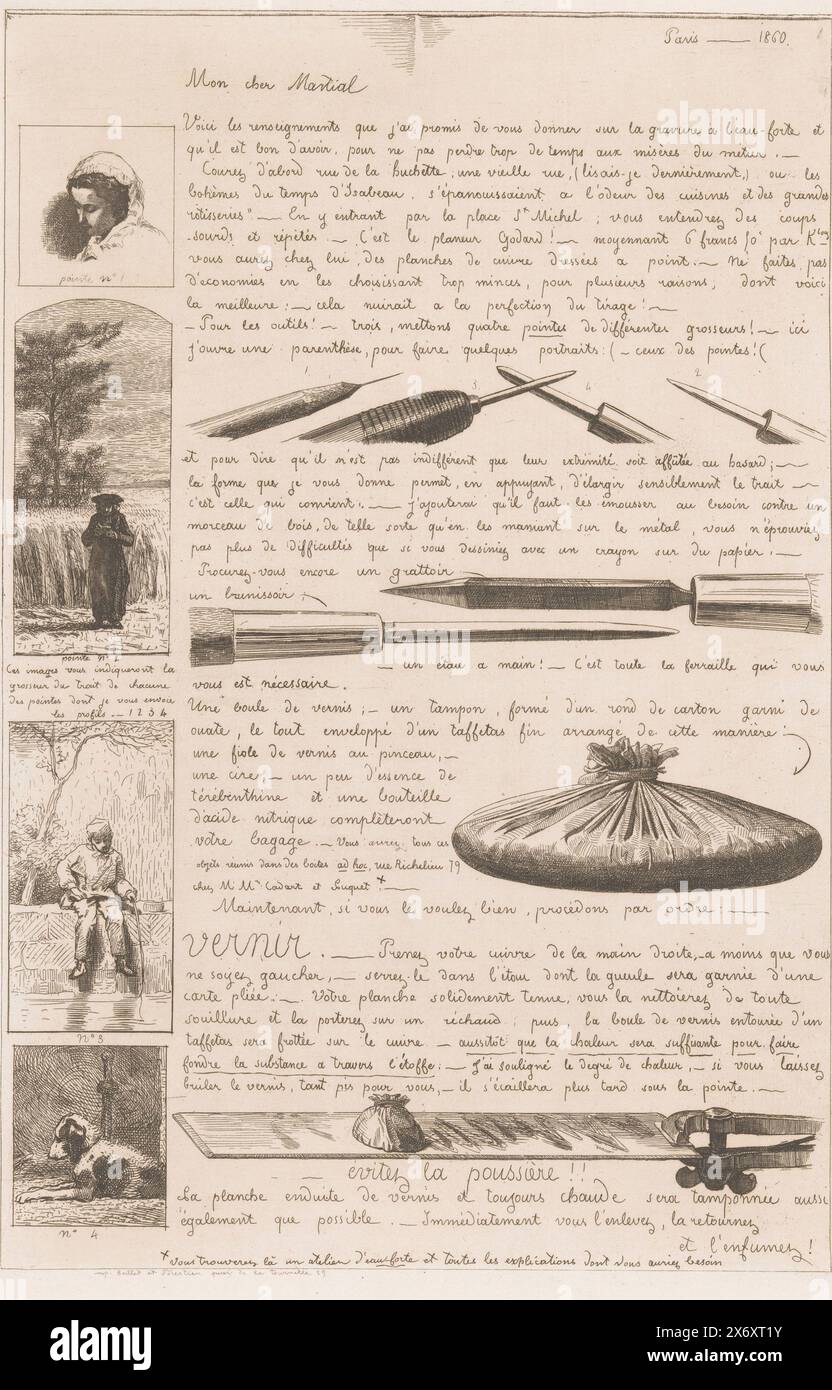 Paris — 1860.
Mon cher Martial
Voici les renseignements que j'ai promis de vous donner sur la gravure à l'eau-forte et
qu'il est bon d'avoir, pour ne pas perdre trop de temps aux misères du métier. —
Courez d'abord rue de la Huchette; une vieille rue, (lisais-je dernièrement,) ou les
bohêmes du temps d'Isabeau, s'épanouissaient a l'odeur des cuisines et des grandes
rôtisseries" — En y entrant par la place St Michel; vous entendrez des coups
sourds et répétés — C'est le planeur Godard! — moyennant 6 francs 50 par
vous aurez chez lui, des planches de cuivre dressées a point. — Ne faites pas
d'économies en les choisissant trop minces, pour plusieurs raisons; dont voici
la meilleure: — cela nuirait a la perfection du tirage! —
— Pour les outils! — trois, mettons quatre pointes de différentes grosseurs! — ici
j'ouvre une parenthèse, pour faire quelques portraits: (— ceux des pointes!(
1 3. 4 2.
et pour dire qu'il n'est pas indifférent que leur extrémité soit affûtée au hasard; —
la forme que je vous donne permet, en appuyant, d'élargir sensiblement le trait —
c'est celle qui convient. — J'ajouterai qu'il faut les émousser au besoin contre un
morceau de bois, de telle sorte qu'en les maniant sur le métal, vous n'éprouviez
pas plus de difficultés que si vous dessiniez avec un crayon sur du papier. —
Procurez-vous encore un grattoir
un brunissoir;
— un étau a main! — C'est toute la ferraille qui vous
vous est nécessaire.
Une boule de vernis; — un tampon, formé d'un rond de carton garni de
ouate, le tout enveloppé d'un taffetas fin arrangé de cette manière:
une fiole de vernis au pinceau, —
une cire, — un peu d'essence de
térébenthine et une bouteille
d'acide nitrique complèteront
votre bagage. — Vous aurez tous ces
objets réunis dans des boites ad hoc, rue Richelieu 79
chez M Mrs Cadart et Luquet x —
Maintenant, si vous le voulez bien, procédons par ordre: —
vernir. — Prenez votre cuivre de la main droite, — a moins que vous
ne soyez gaucher, — serrez-le dans l'étau dont la gueule sera garnie d'une
carte pliée. — Votre planche solidement tenue, vous la nettoierez de toute
souillure et la porterez sur un réchaud; puis la boule de vernis entourée d'un
taffetas sera frottée sur le cuivre — aussitôt que la chaleur sera suffisante pour faire
fondre la substance a travers l'étoffe: — J'ai souligné le degré de chaleur, — si vous laissez
brûler le vernis, tant pis pour vous, — il s'écaillera plus tard sous la pointe. —
— évitez la poussière!!
La planche enduite de vernis et toujours chaude sera tamponnée aussi
également que possible. — Immédiatement vous l'enlevez, la retournez
et l'enfumez!
x vous trouverez là un atelier d'eau-forte et toutes les explications dont vous auriez besoin
pointe n° 1
pointe n° 2
Ces images vous indiqueront la
grosseur du trait de chacune
des pointes dont je vous envoie
les profils — 1 2 3 4
n° 3
n° 4
quai de la Tournelle
alamy
Image ID: 2X6XT1Y
www.alamy.com